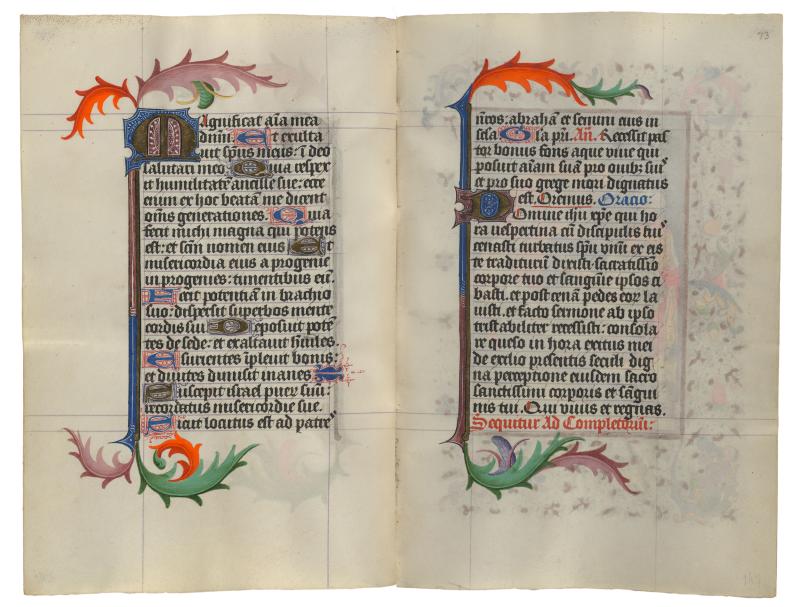 Magnificat aīa mea
dn̄m: Et exulta
uit sp̄us meus: ī deo
salutari meo. Quia respex
it humilitatē ancille sue: ecce
enim ex hoc beatā me dicent
om̄s generationes. Quia
fecit michi magna qui potens
est: et sc̄m nomen eius Et
misericordia eius a progenie
in progenies: timentibus eū.
Fecit potentiā in brachio
suo: dispersit superbos mente
cordis sui Deposuit potē
tes de sede: et exaltauit hūiles.
Esurientes īpleuit bonis:
et diuites dimisit inanes
Suscepit israel puerū suū:
recordatus misericordie sue.
Sicut locutus est ad patre
73
n̄ros: abrahā et semini eius in
sc̄la. Gl̄a pr̄i. An̄. Recessit pas
tor bonus fons aque uiue qui
posuit aīam suā pro ouibꝫ suis
et pro suo grege mori dignatus
est. Oremus. Oracio:
Domine ih̄u xp̄e qui ho
ra uespertina cū discipulis tuis
cenasti turbatus sp̄u vnū ex eis
te traditurū dixisti. sacratissīo
corpore tuo et sanguīe ipsos ci
basti. et post cenā pedes eor la
uisti. et facto sermone ab ipso
tristabiliter recessisti: consola
re queso in hora exitus mei
de exilio presentis seculi dig
na perceptione eiusdem sacro
sanctissimi corporis et sāgui
nis tui. Qui viuis et regnas.
Sequitur Ad Completoriū: